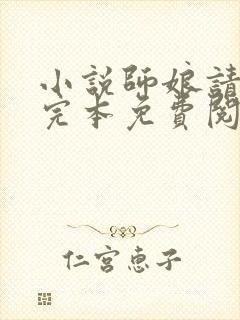 小說師娘請
完本免費閱
仁宮惠子